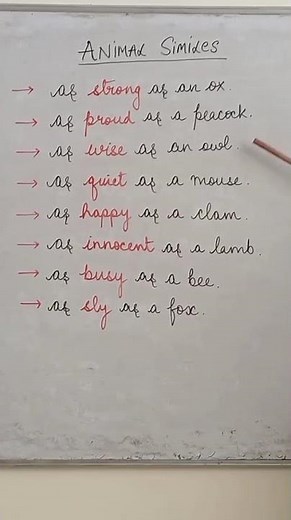 ANIMAL SIMILES
→ as strong as an ox.
→ as proud as a peacock.
→ as wise as an owl.
→ as quiet as a mouse.
→ as happy as a clam.
→ as innocent as a lamb.
→ as busy as a bee.
→ as sly as a fox.